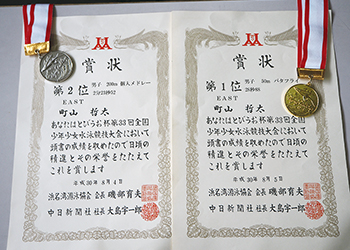 賞状
第2位
男子 200m 個人メドレー
EAST
町山 哲太
あなたはとびうお杯第33回全国
少年少女水泳競技大会において
頭書の成績を収めたので日頃の
精進とその栄誉をたたえて
これを賞します
平成30年8月4日
浜名湾游泳協会 会長 磯部育夫
中日新聞社 社長 大島宇一郎
賞状
第1位
男子 50m バタフライ
EAST
町山 哲太
あなたはとびうお杯第33回全国
少年少女水泳競技大会において
頭書の成績を収めたので日頃の
精進とその栄誉をたたえて
これを賞します
平成30年8月5日
浜名湾游泳協会 会長 磯部育夫
中日新聞社 社長 大島宇一郎